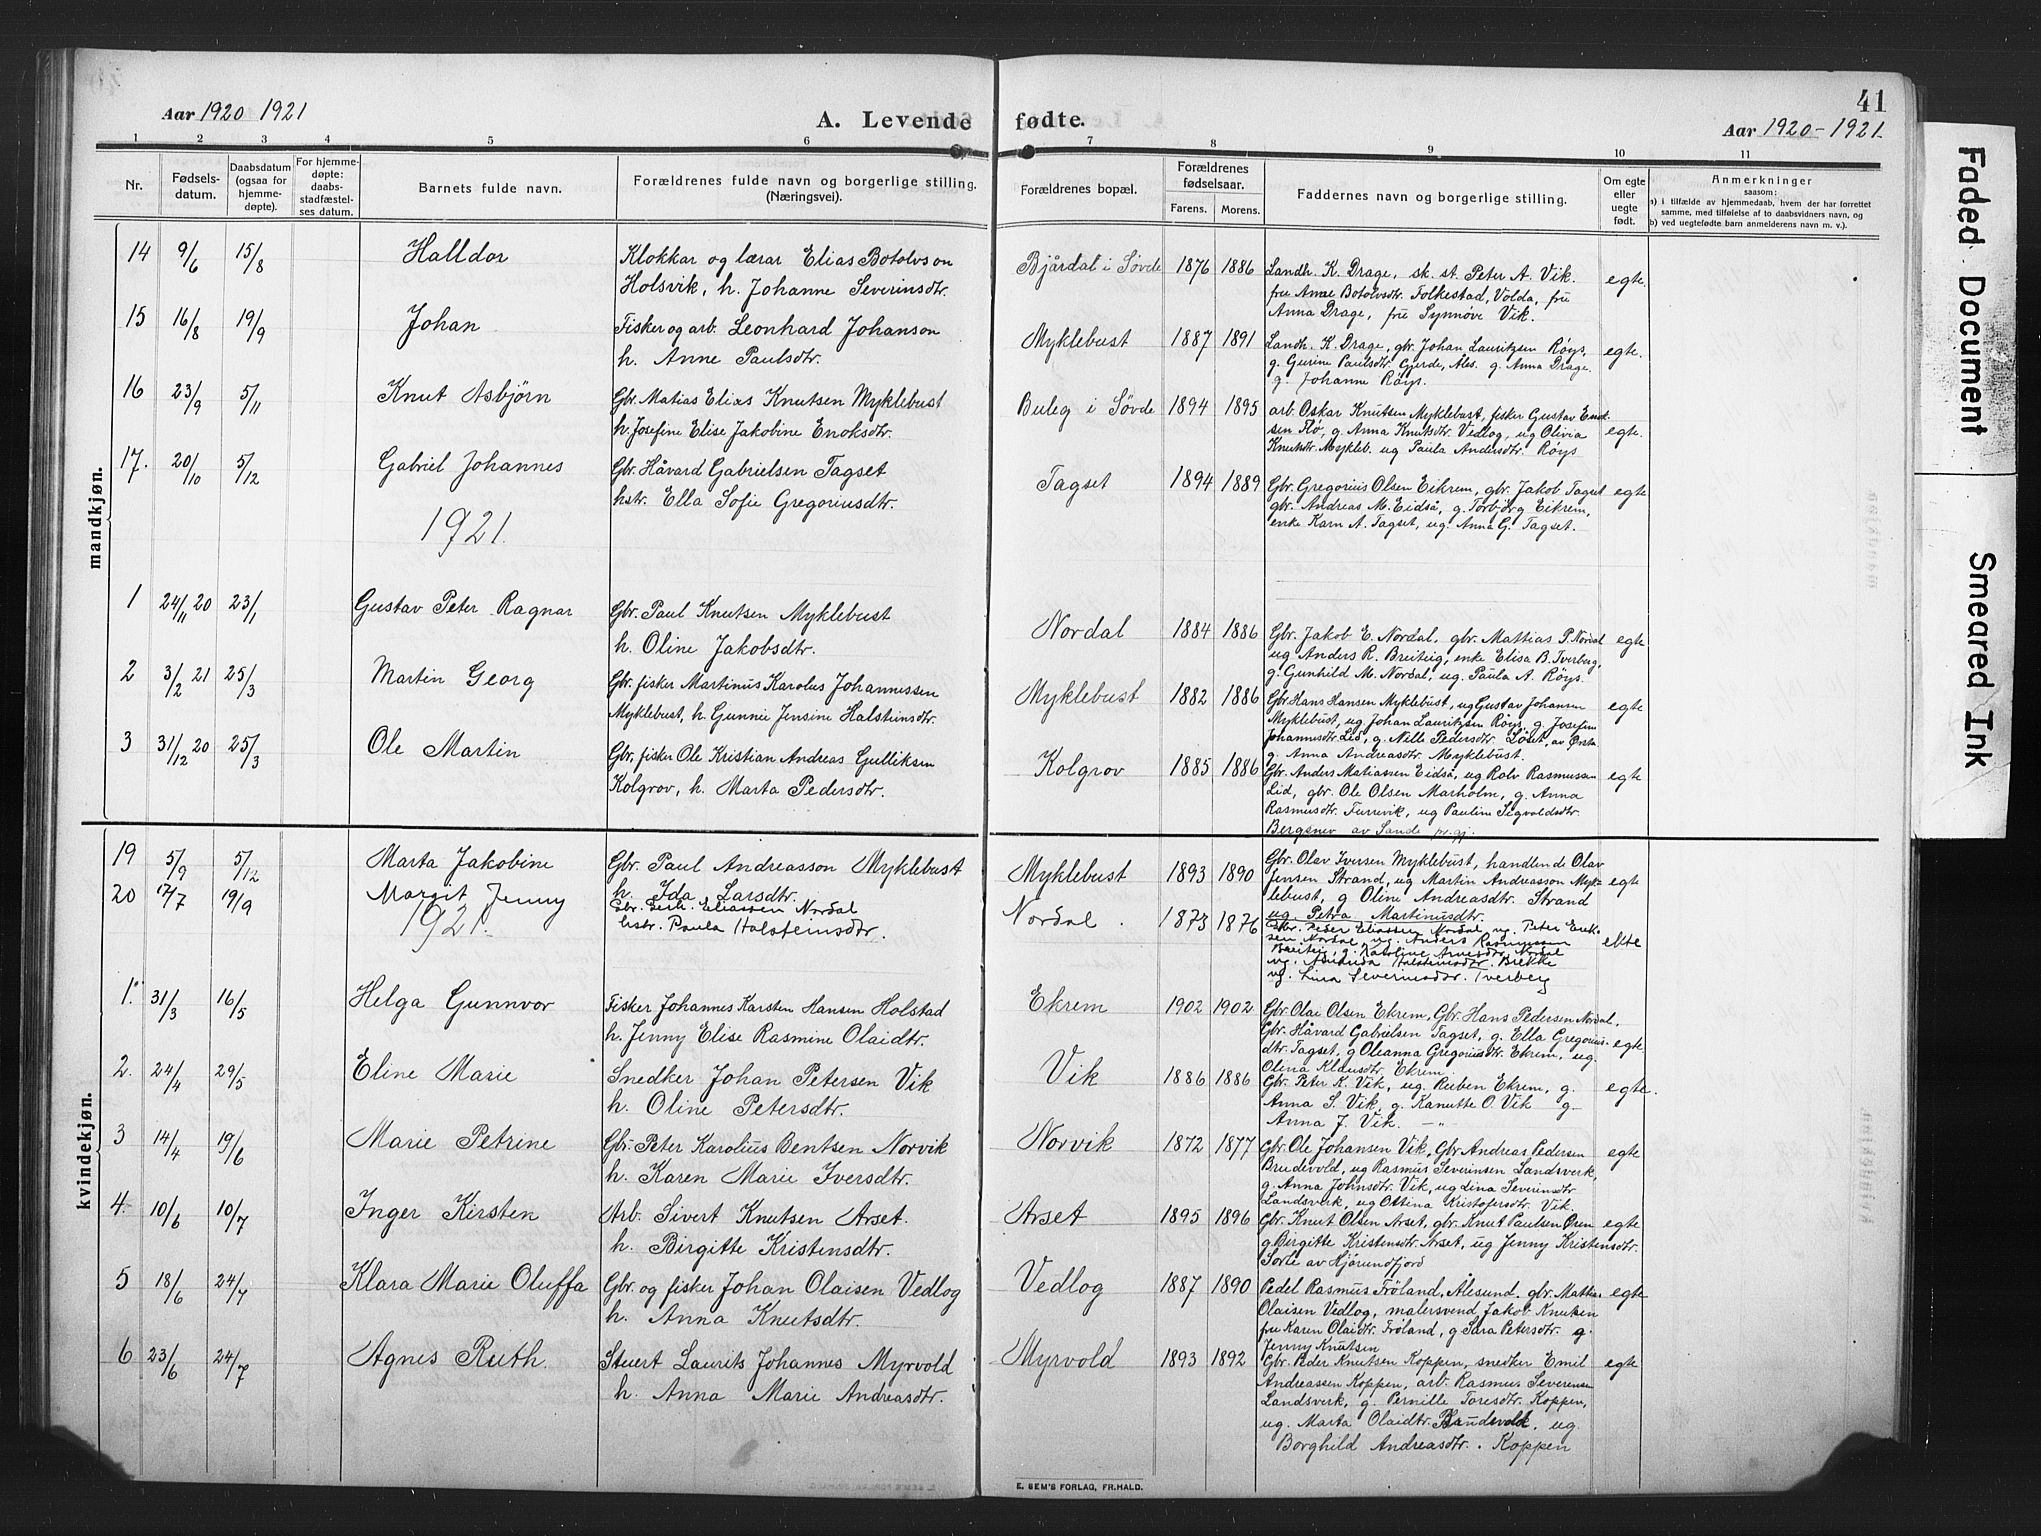 41
Aar 1920 1921
A. Levende fødte.
Aar 1920-1921
1 2 3 4 5 6 7 8 9 10 11
Nr.
Fødsels-
datum.
Daabsdatum
(ogsaa for
hjemme-
døpte).
For hjemme-
døpte:
daabs-
stadfæstel-
ses datum.
Barnets fulde navn.
Forældrenes fulde navn og borgerlige stilling.
(Næringsvei).
Forældrenes bopæl.
Forældrenes
fødselsaar.
Farens. Morens.
Faddernes navn og borgerlige stilling.
Om egte
eller
uegte
født.
Anmerkninger
saasom:
a) i tilfælde av hjemmedaab, hvem der har forrettet
samme, med tilføielse af to daabsvidners navn, og
b) ved uegtefødte barn anmelderens navn m. v.).
mandkjøn.
14 9/6 15/8 Halldor
Klokkar og lærar Elias Botolvson
Holsvik, h. Johanne Severinsdtr.
Bjårdal i Søvde 1876 1886
Landh. K. Drage, sk. st. Peter A. Vik.
fru Anne Botolvsdtr. Folkestad, Volda, fru
Anna Drage, fru Synnøve Vik.
egte.
15 16/8 19/9 Johan
Fisker og arb. Leonhard Johanson
h. Anne Paulsdtr.
Myklebust 1887 1891
Landh. K. Drage, gbr. Johan Lauritzen Røys,
g. Gurine Paulsdtr. Gjerde, Ales. g. Anna Drage.
g. Johanne Røys.
egte.
16 23/9 5/11 Knut Asbjørn
Gbr. Matias Elias Knutsen Myklebust
h. Josefine Elise Jakobine Enoksdtr.
Buleg i Søvde 1894 1895
arb. Oskar Knutsen Myklebust, fisker Gustav Enok-
sen Flø, g. Anna Knutsdtr. Vedlog, ug Olivia
Knutsdtr. Mykleb. ug Paula Andersdtr. Røys
egte.
17. 20/10 5/12 Gabriel Johannes
Gbr. Håvard Gabrielsen Tagset
hstr. Ella Sofie Gregoriusdtr.
Tagset 1894 1889
Gbr. Gregorius Olsen Eikrem, gbr. Jakob Tagset
gbr. Andreas M. Eidså, g. Torbjørg Eikrem,
enke Karn A. Tagset, ug Anna G. Tagset.
egte
1921.
1 24/11 20 23/1 Gustav Peter Ragnar
Gbr. Paul Knutsen Myklebust
h. Oline Jakobsdtr.
Nordal 1884 1886
Gbr. Jakob E. Nordal, gbr. Mattias P. Nordal
ug Anders R. Breiteig, enke Elisa B. Tverberg,
g. Gunhild M. Nordal, ug. Paula A. Røys.
egte
2 3/2 21 25/3 Martin Georg
Gbr. fisker Martinus Karolus Johannessen
Myklebust, h. Gunnie Jensine Halsteinsdtr.
Myklebust 1882 1886
Gbr. Hans Hansen Myklebust, ug Gustav Johansen
Myklebust, ug Johan Lauritzen Røys, g. Josefine
Johannesdtr. Lid, g. Nille Pedersdtr. Løset, av Ørsta
g. Anna Andreasdtr. Myklebust.
egte
3 31/12 20 25/3 Ole Martin
Gbr. fisker Ole Kristian Andreas Gulliksen
Kolgrov, h. Marta Pedersdtr.
Kolgrov 1885 1886
Gbr. Anders Matiassen Eidså, ug Rolv Rasmussen
Lid, gbr. Ole Olsen Marholm, g. Anna
Rasmusdtr. Furrevik, ug Pauline Sigvaldsdtr.
Bergsnev av Sande pr.gj.
egte
kvindekjøn.
19 5/9 5/12 Marta Jakobine
Gbr. Paul Andreasson Myklebust
h. Ida Larsdtr.
Myklebust 1893 1890
Gbr. Olav Iversen Myklebust, handlende Olav
Jensen Strand, ug Martin Andreasson Myk-
lebust, g Oline Andreasdtr. Strand
ug. Petra Martinusdtr.
egte
20 17/7 19/9 Margit Jenny
Gbr. Eliassen Nordal
hstr. Paula Halsteinsdtr.
Nordal. 1873 1876
Gbr. Peder Eliassen Nordal ug. Peter Erik-
sen Nordal, ug. Anders Rasmussen
Breiteig, g. Karoline Arnesdtr. Nordal
ug. Halsteinsdtr. Brekke
ug. Lina Severinsdtr. Tverberg
ekte
1921.
1. 31/3 16/5 Helga Gunnvor
Fisker Johannes Karsten Hansen Holstad
h. Jenny Elise Rasmine Olaidtr.
Ekrem 1902 1902
Gbr. Olai Olsen Ekrem, Gbr. Hans Pedersen Nordal,
Gbr. Håvard Gabrielsen Tagset, g. Ella Gregorius-
dtr. Tagset, g Oleanna Gregoriusdtr. Ekrem, ug
Olina Klausdtr. Ekrem
egte
2. 24/4 29/5 Eline Marie
Snedker Johan Petersen Vik
h. Oline Petersdtr.
Vik 1886 1886
Gbr. Peter K. Vik, ug. Ruben Ekrem, g.
Anna S. Vik, g. Kanutte O. Vik g.
Anna J. Vik. —„—
egte.
3 14/4 19/6 Marie Petrine
Gbr. Peter Karolius Bentsen Norvik
h. Karen Marie Iversdtr.
Norvik 1872 1877
Gbr. Ole Johansen Vik, Gbr. Andreas Pedersen
Brudevold, ug Rasmus Severinsen Landsverk,
g. Anna Johnsdtr. Vik, ug Lina Severinsdtr
Landsverk, ug Ottina Kristofersdtr. Vik.
egte
4. 10/6 10/7 Inger Kirsten
Arb. Sivert Knutsen Arset.
h. Birgitte Kristensdtr.
Arset 1895 1896
Gbr. Knut Olsen Arset, gbr. Knut Paulsen Øren
g Birgitte Kristensdtr. Arset, ug Jenny Kristensdtr.
Sorte av Hjørundfjord
egte
5 18/6 24/7 Klara Marie Oluffa
Gbr. og fisker Johan Olaisen Vedlog
h. Anna Knutsdtr.
Vedlog 1887 1890
Pedel Rasmus Frøland, Ålesund, gbr. Mattias
Olaisen Vedlog, malersvend Jakob Knutsen
fru Karen Olaidtr. Frøland, g Sara Petersdtr. g.
Jenny Knutsen
egte
6 23/6 24/7 Agnes Ruth.
Stuert Laurits Johannes Myrvold
h. Anna Marie Andreasdtr.
Myrvold 1893 1892
Gbr. Peder Knutsen Koppen, snedker Emil
Andreassen Koppen, arb. Rasmus Severinsen
Landsverk, g. Pernille Toresdtr. Koppen,
ug. Marta Olaidtr. ug.
Borghild Andreasdtr. Koppen
egte
E. SEM'S FORLAG, FR.HALD.
Faded Document
Smeared Ink